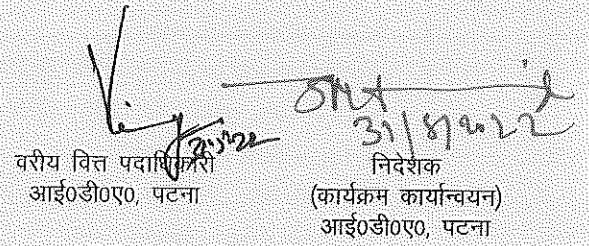 31/8/2022
वरीय वित्त पदाधिकारी
आई0डी0ए0, पटना
निदेशक
(कार्यक्रम कार्यान्वयन)
आई0डी0ए0, पटना